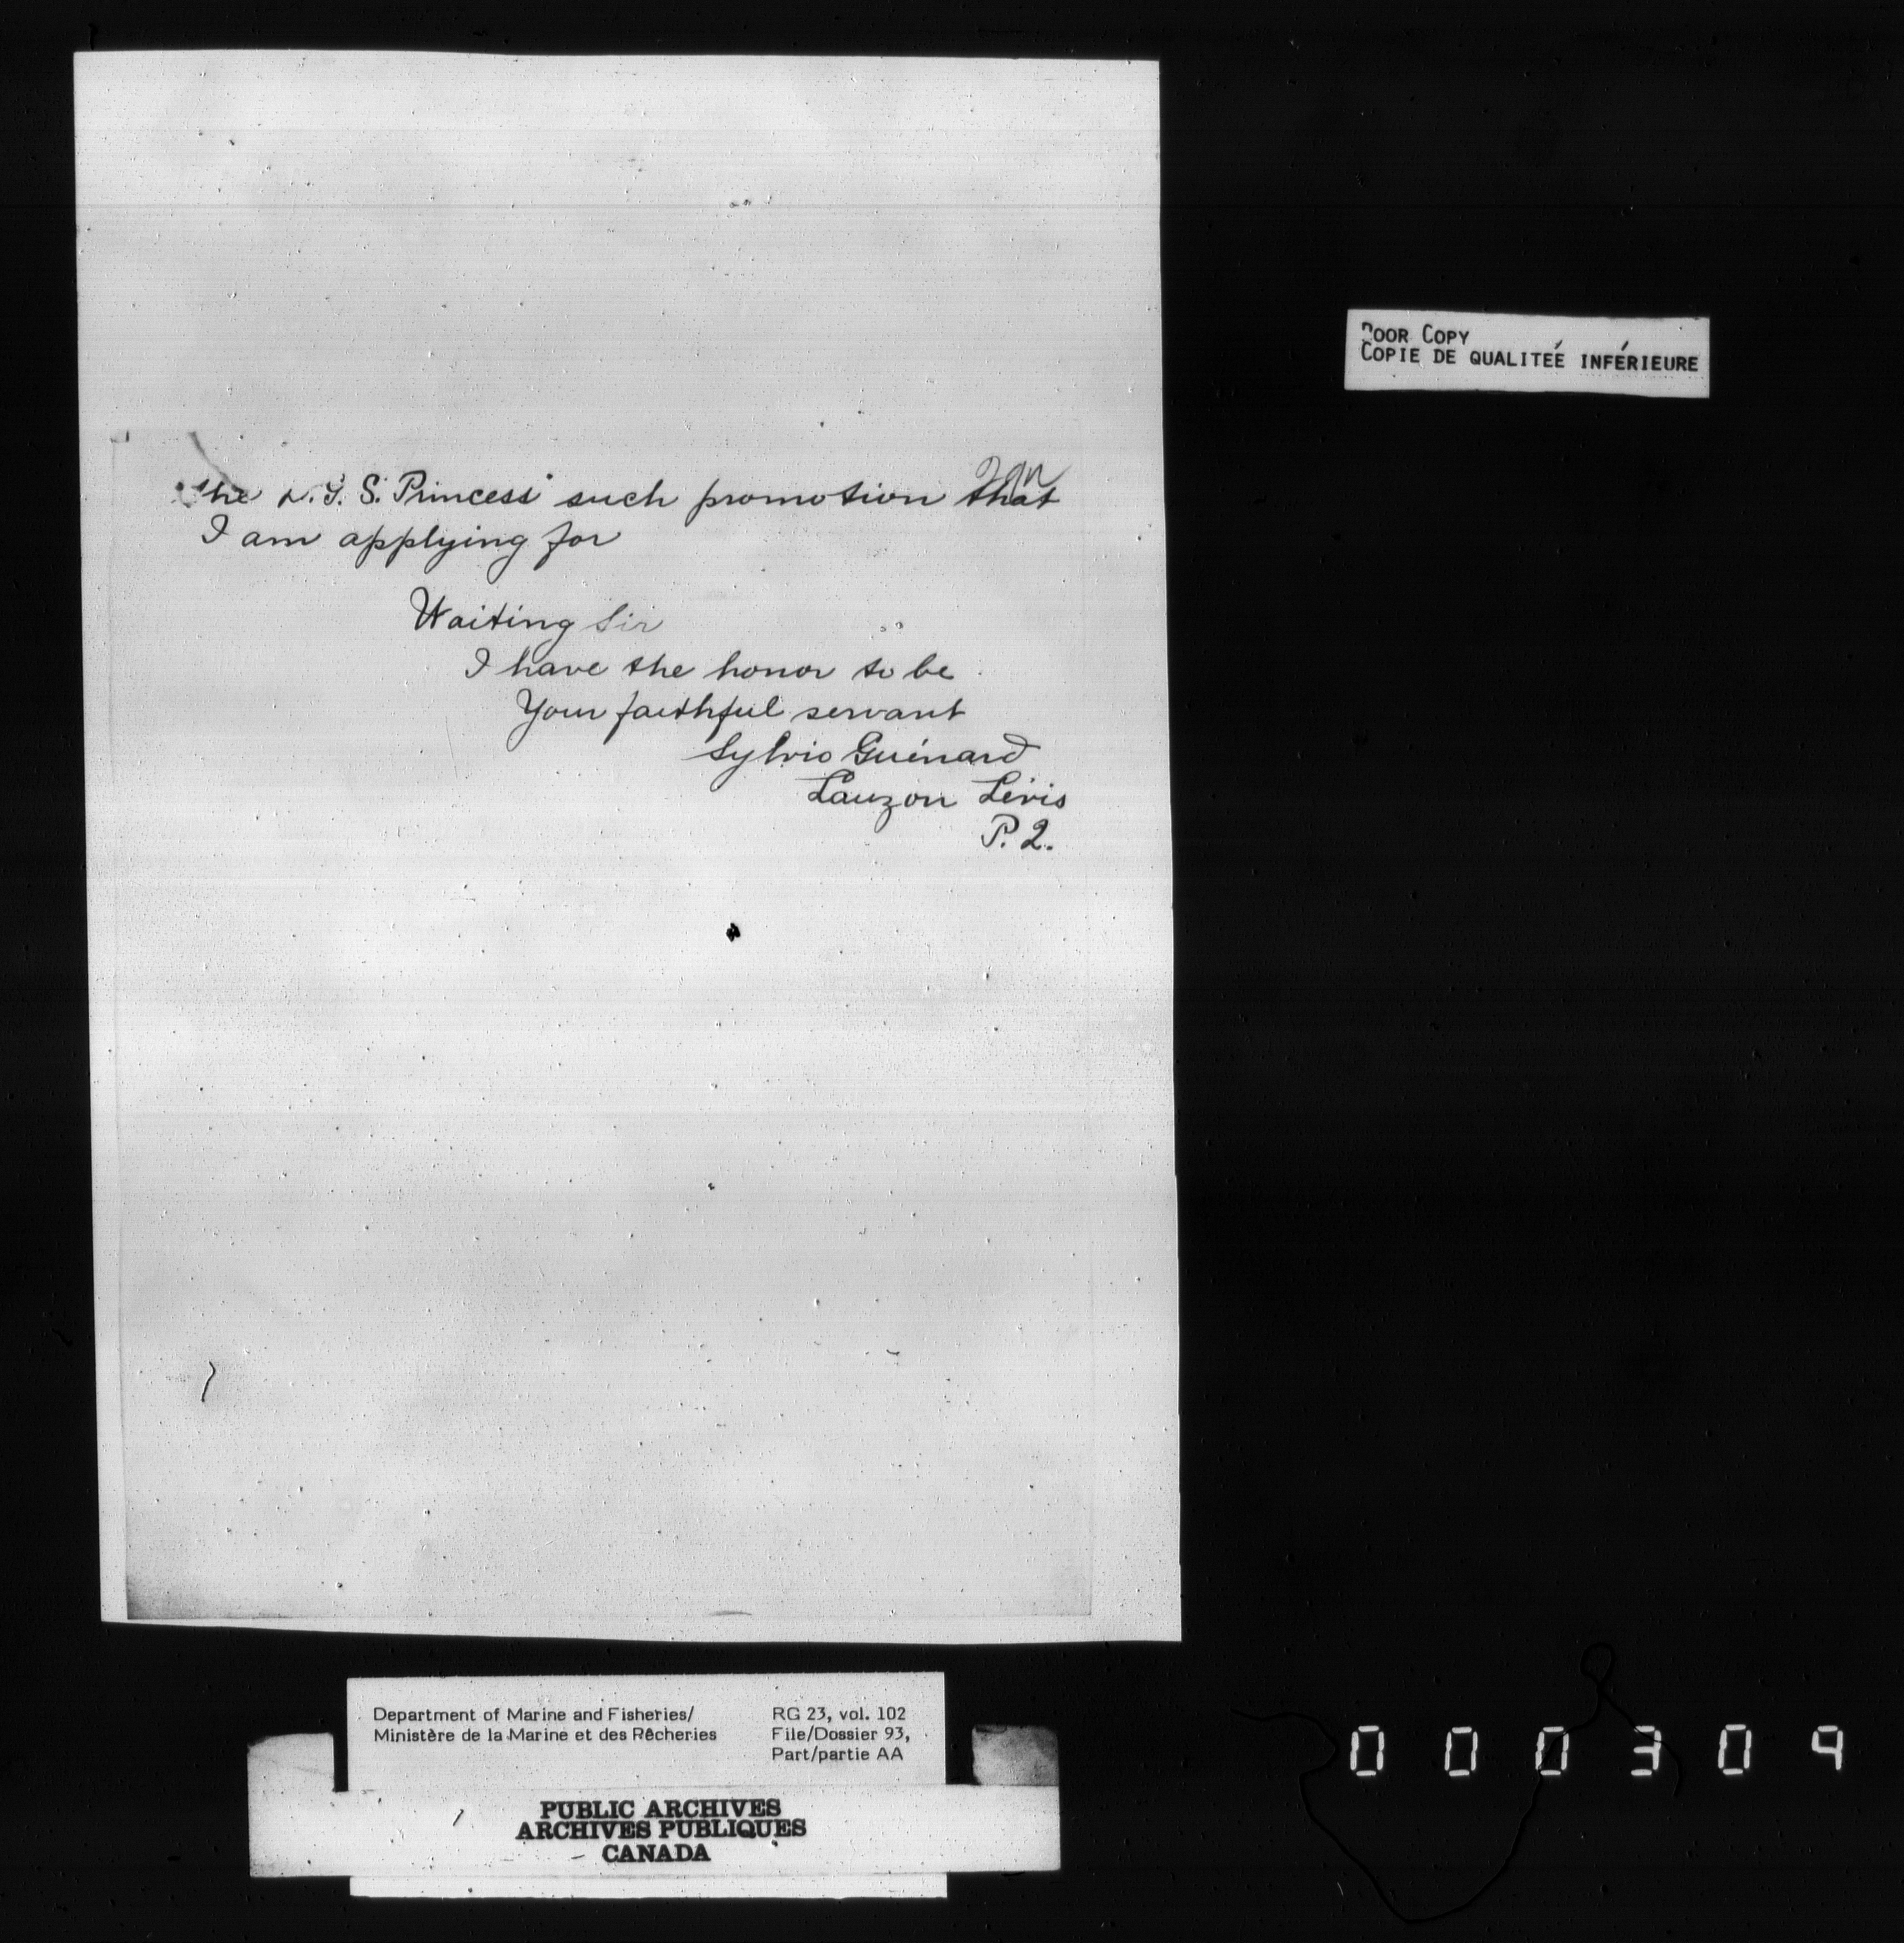 the D.G.S. Princess such promotion that
I am applying for
Waiting Sir
I have the honor to be
Your faithful servant
Sylvio Guénard
Lauzon Lévis
P. Q.
POOR COPY
COPIE DE QUALITEÉ INFÉRIEURE
Department of Marine and Fisheries/
Ministère de la Marine et des Pêcheries
RG 23, vol. 102
File/Dossier 93,
Part/partie AA
PUBLIC ARCHIVES
ARCHIVES PUBLIQUES
CANADA
000309